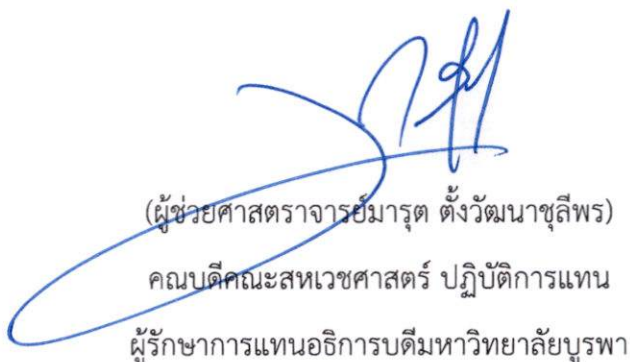 (ผู้ช่วยศาสตราจารย์มารุต ตั้งวัฒนาชุลีพร)
คณบดีคณะสหเวชศาสตร์ ปฏิบัติการแทน
ผู้รักษาการแทนอธิการบดีมหาวิทยาลัยบูรพา